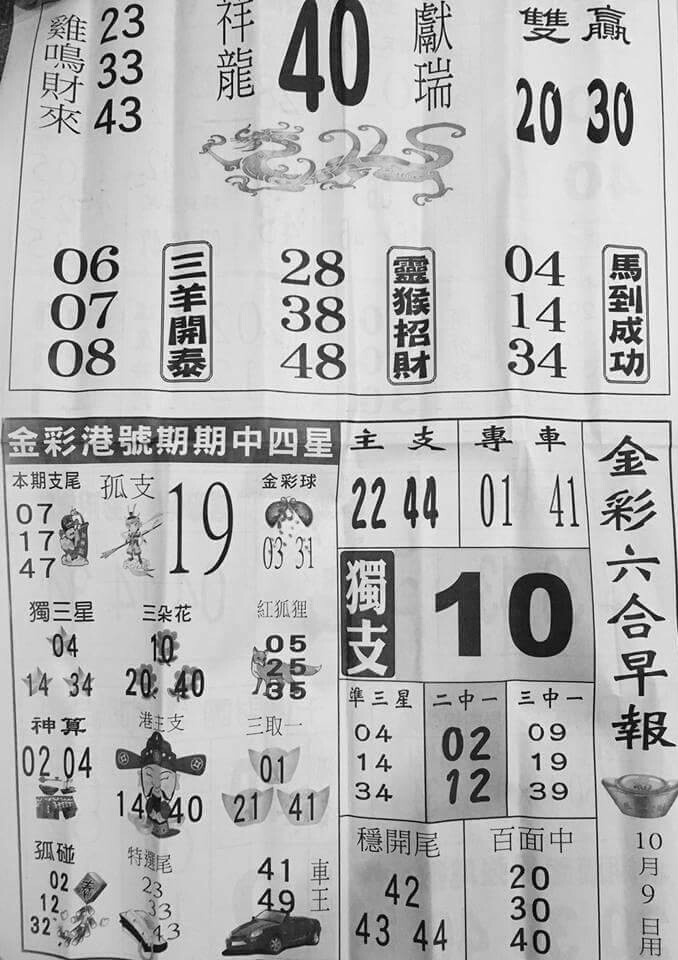 雞鳴財來
23
33
43
祥龍
40
獻瑞
雙贏
20 30
06
07
08
三羊開泰
28
38
48
靈猴招財
04
14
34
馬到成功
金彩港號期期中四星
本期支尾
07
17
47
孤支
19
金彩球
03 31
獨三星
04
14 34
三朵花
10
20 40
紅狐狸
05
25
35
神算
02 04
港主支
14 40
三取一
01
21 41
孤碰
02
12
32
特選尾
23
33
43
車王
41
49
主支
22 44
專車
01 41
獨支
10
準三星
04
14
34
二中一
02
12
三中一
09
19
39
穩開尾
42
43 44
百面中
20
30
40
金彩六合早報
10月9日用